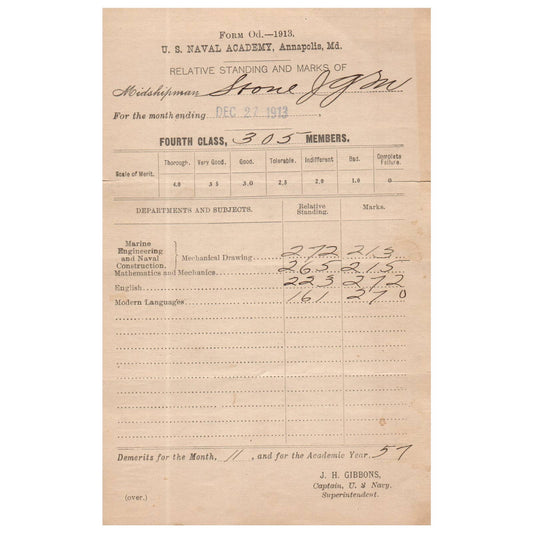 FORM Od.—1913.
U. S. NAVAL ACADEMY, Annapolis, Md.
RELATIVE STANDING AND MARKS OF
Midshipman Stone J G M
For the month ending DEC 27 1913
FOURTH CLASS, 305 MEMBERS.
Scale of Merit. Thorough. Very Good. Good. Tolerable. Indifferent Bad. Complete Failure.
4.0 3.5 3.0 2.5 2.0 1.0 0
DEPARTMENTS AND SUBJECTS. Relative Standing. Marks.
Marine Engineering and Naval Construction. Mechanical Drawing 272 213
Mathematics and Mechanics. 265 215
English 223 272
Modern Languages 161 270
Demerits for the Month, 11, and for the Academic Year. 57
J. H. GIBBONS,
Captain, U. S Navy.
Superintendent.
(over.)